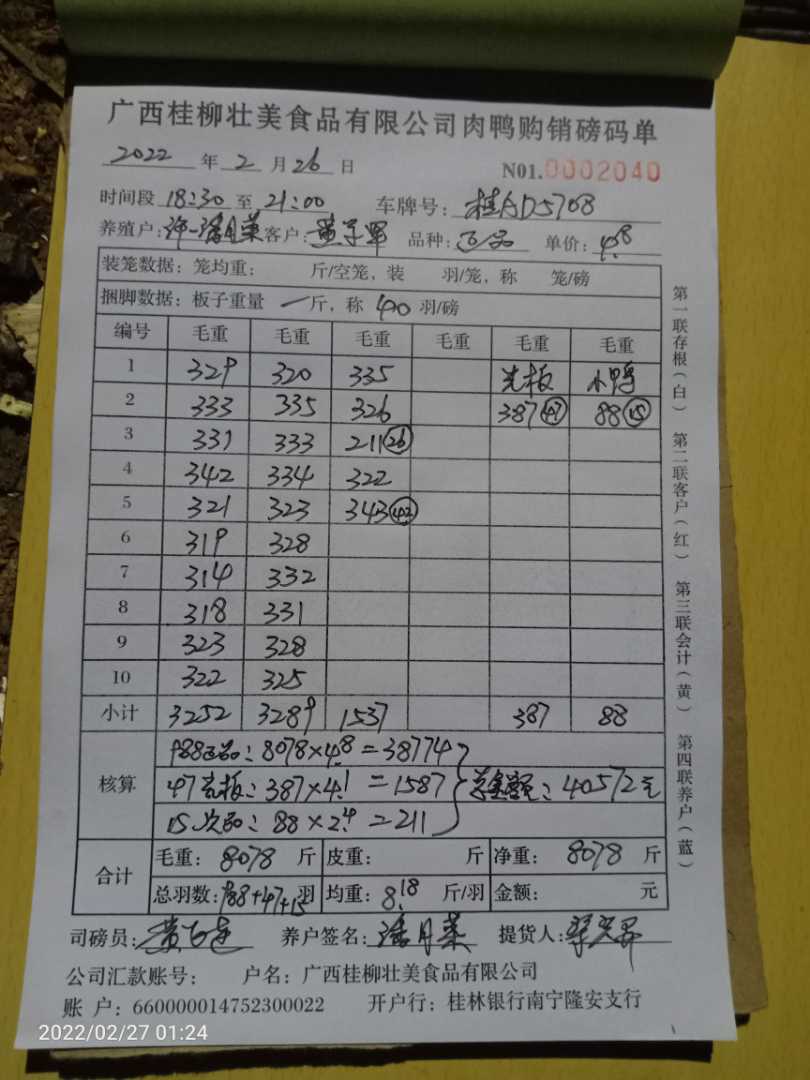 广西桂柳壮美食品有限公司肉鸭购销磅码单
2022 年 2 月 26 日 N01.0002040
时间段 18:30 至 21:00 车牌号: 桂AD5708
养殖户: 许一潘月菜 客户: 黄子军 品种: 正品 单价: 4.8
装笼数据: 笼均重: 斤/空笼, 装 羽/笼, 称 笼/磅
捆脚数据: 板子重量 一斤, 称 40 羽/磅
编号 毛重 毛重 毛重 毛重 毛重 毛重
1 329 320 335 光板 小鸭
2 333 335 326 387(47) 88(15)
3 331 333 211(26)
4 342 334 322
5 321 323 343(42)
6 319 328
7 314 332
8 318 331
9 323 328
10 322 325
小计 3252 3289 1537 387 88
核算 988正品: 8078×4.8=38774
47光板: 387×4.1=1587 总金额: 40572元
15次品: 88×2.4=211
合计 毛重: 8078 斤 皮重: 斤 净重: 8078 斤
总羽数: 988+47+15 羽 均重: 8.18 斤/羽 金额: 元
司磅员: 养户签名: 潘月菜 提货人:
公司汇款账号: 户名: 广西桂柳壮美食品有限公司
账 户: 660000014752300022 开户行: 桂林银行南宁隆安支行
第一联存根(白) 第二联客户(红) 第三联会计(黄) 第四联养户(蓝)
2022/02/27 01:24